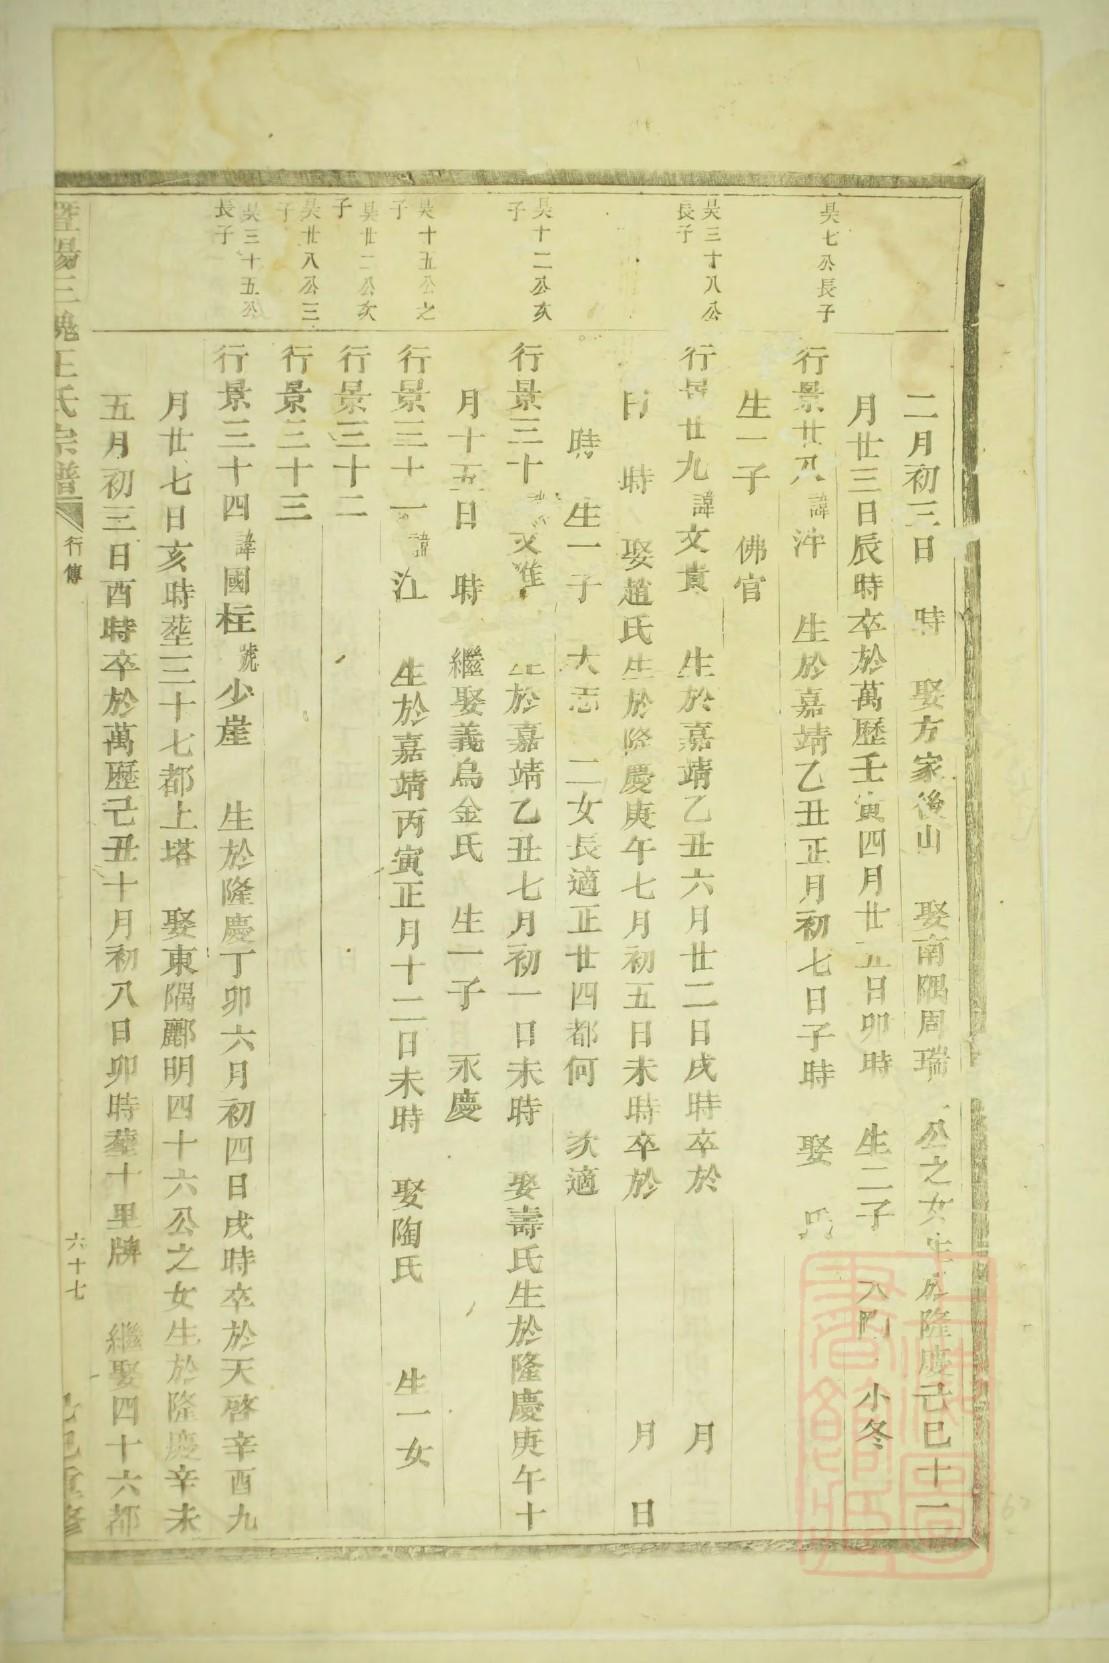 二月初三日 時 娶方家後山 娶南隅周瑞 公之女生於隆慶己巳十一
月廿三日辰時卒於萬歷壬寅四月廿五日卯時 生二子 小冬
昊七公長子
行景廿八諱沖 生於嘉靖乙丑正月初七日子時 娶 氏
生一子 佛官
昊三十八公長子
行景廿九諱文貴 生於嘉靖乙丑六月廿二日戌時卒於 月
日 時 娶趙氏生於隆慶庚午七月初五日未時卒於 月 日
時 生一子 大志 二女長適正廿四都何 次適
昊十二公次子
行景三十 文 生於嘉靖乙丑七月初一日未時 娶壽氏生於隆慶庚午十
月十五日 時 繼娶義烏金氏 生一子 永慶
昊十五公之子
行景三十一諱江 生於嘉靖丙寅正月十二日未時 娶陶氏 生一女
昊廿二公次子
行景三十二
昊廿八公三子
行景三十三
昊三十五公長子
行景三十四諱國柱號少崖 生於隆慶丁卯六月初四日戌時卒於天啓辛酉九
月廿七日亥時塟三十七都上塔 娶東隅酈明四十六公之女生於隆慶辛未
五月初三日酉時卒於萬歷己丑十月初八日卯時塟十里牌 繼娶四十六都
暨陽三槐王氏宗譜 行傳 六十七 己巳重修